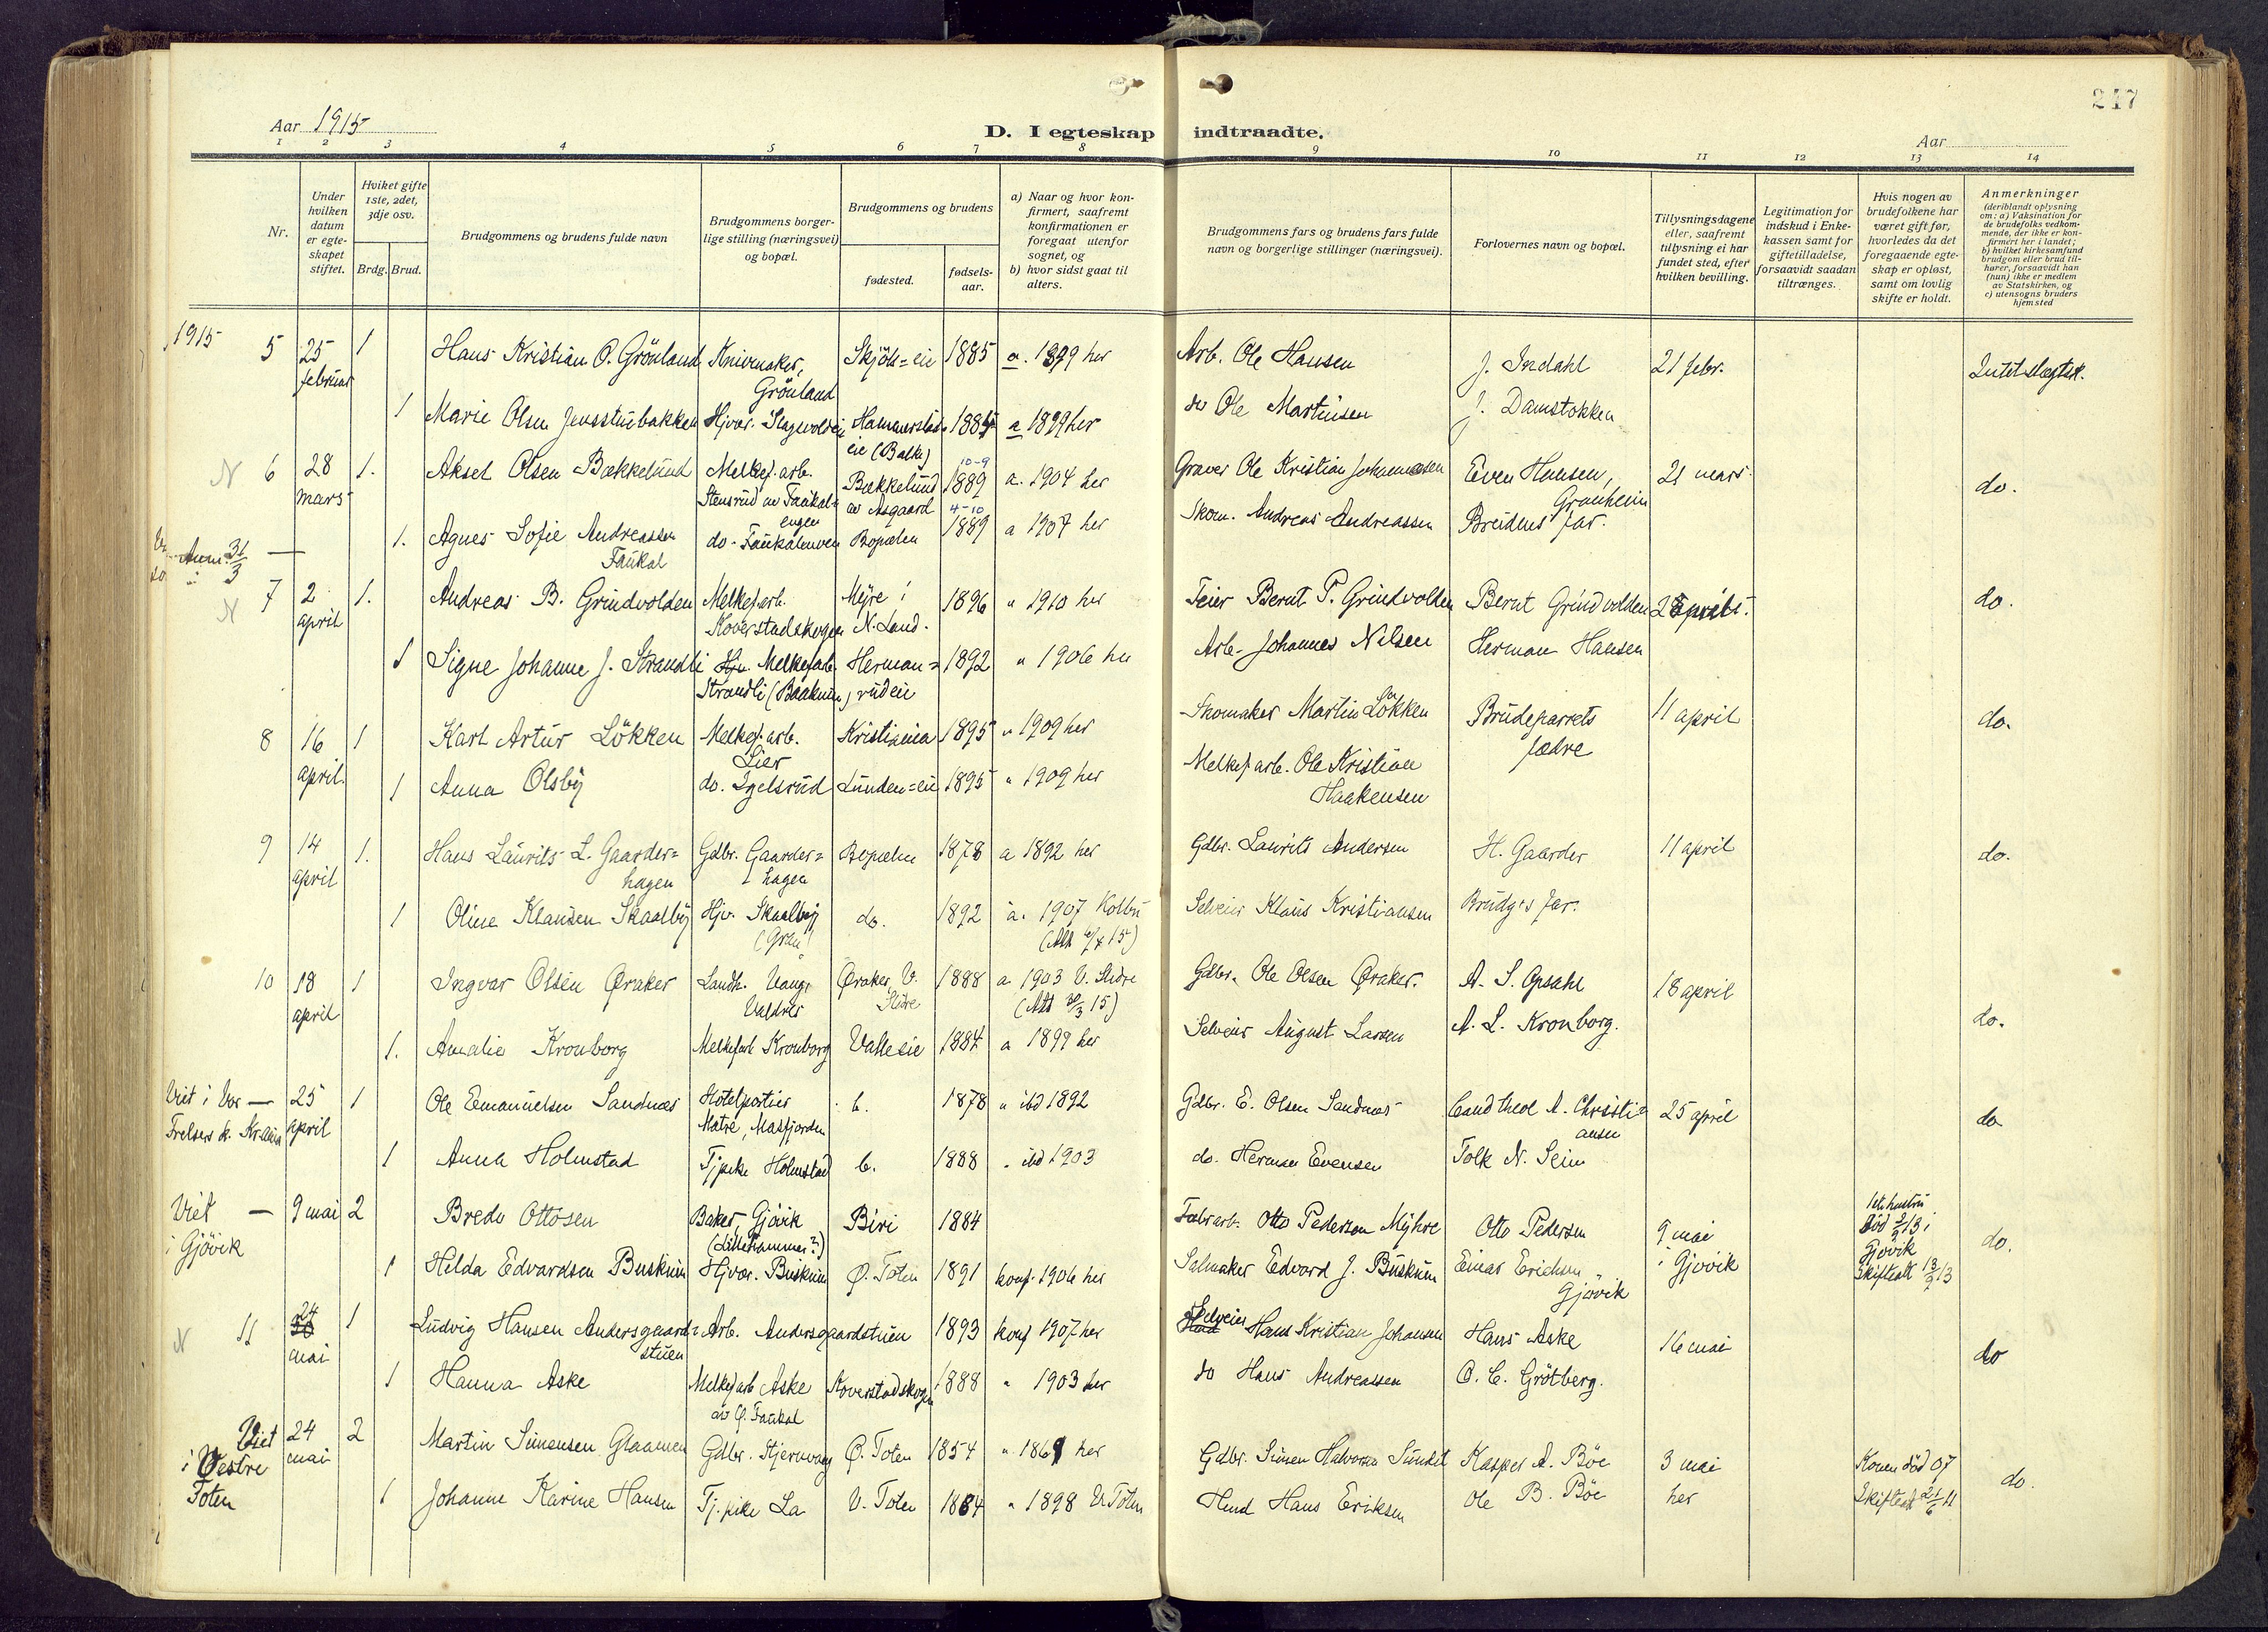 247
Aar 1915
D. I egteskap indtraadte.
Aar
1 2 3 4 5 6 7 8 9 10 11 12 13 14
Nr.
Under hvilken datum er egte- skapet stiftet.
Hviket gifte 1ste, 2det, 3dje osv.
Brdg. Brud.
Brudgommens og brudens fulde navn
Brudgommens borger- lige stilling (næringsvei) og bopæl.
Brudgommens og brudens
fødested.
fødsels- aar.
a) Naar og hvor kon- firmert, saafremt konfirmationen er foregaat utenfor sognet, og
b) hvor sidst gaat til alters.
Brudgommens fars og brudens fars fulde navn og borgerlige stillinger (næringsvei).
Forlovernes navn og bopæl.
Tillysningsdagene eller, saafremt tillysning ei har fundet sted, efter hvilken bevilling.
Legitimation for indskud i Enke- kassen samt for giftetilladelse, forsaavidt saadan tiltrænges.
Hvis nogen av brudefolkene har været gift før, hvorledes da det foregaaende egte- skap er opløst, samt om lovlig skifte er holdt.
Anmerkninger (deriblandt oplysning om: a) Vaksination for de brudefolks vedkom- mende, der ikke er kon- firmert her i landet; b) hvilket kirkesamfund brudgom eller brud til- hører, forsaavidt han (hun) ikke er medlem av Statskirken, og c) utensogns bruders hjemsted
1915
5 25 februar 1 Hans Kristian O. Grönland Knivmaker, Grönland Skjöls=eie 1885 a. 1899 her Arb. Ole Hansen J. Indahl 21 febr. Intet slegtsk.
1 Marie Olsen Jensstuebakken Hjvær. Slagsvoldeie Hammerstad= eie (Balke) 1885 a 1899 her do Ole Martinsen J. Damstokken
N 6 28 mars 1. Aksel Olsen Bækkelund Melkef. arb. Stensrud av Faukal= engen Bækkelund av Asgaard 10-9 1889 a. 1904 her Graver Ole Kristian Johannessen Even Hansen, Granheim 21 mars. do.
1. Agnes Sofie Andreassen Faukal do. Faukalenven Bopælen 4-10 1889 a 1907 her Skom. Andreas Andreassen Brudens far.
Anm. 31/3 —
N 7 2 april 1. Andreas B. Grindvolden Melkef.arb. Koverstadskogen Myre i N. Land. 1896 " 1910 her Feier Bernt P. Grindvolden Bernt Grindvolden 2 april. do.
1 Signe Johanne J. Strandli Hjv. Melkef.arb. Strandli (Baakinn) Herman= rudeie 1892 " 1906 her Arb. Johannes Nilsen Herman Hansen
8 16 april. 1 Karl Artur Lökken Melkef. arb. Lier Kristiania 1895 " 1909 her Skomaker Martin Lökken Brudeparrets fædre 11 april do.
1 Anna Olsby do. Igelsrud Lunden=eie 1895 " 1909 her Melkef arb. Ole Kristian Haakensen
9 14 april 1. Hans Laurits L. Gaarder= hagen Gdbr. Gaarder= hagen Bopælen 1878 a 1892 her Gdbr. Laurits Andersen H. Gaarder 11 april do.
1 Oline Klausen Skaalby Hjv. Skaalby (Gran) do. 1892 a. 1907 Kolbu (Att 6/4 15) Selveier Klaus Kristiansen Brudg's far.
10 18 april 1 Ingvar Olsen Øraker Landh. Vangs Valdres Øraker, V. Slidre 1888 a 1903 V. Slidre (Att 30/3 15) Gdbr. Ole Olsen Øraker. A. S. Opsahl 18 april do.
1. Amalie Kronborg Melkefarb Kronborg Valleeie 1884 a 1899 her Selveier August Larsen A. L. Kronborg.
Viet i Vor Frelsers k. Kr.ania — 25 april 1 Ole Emanuelsen Sandnæs Hotelportier Matre, Masfjorden b. 1878 " ibd 1892 Gdbr. E. Olsen Sandnæs Cand theol A. Christi= ansen 25 april do
1 Anna Holmstad Tjpike Holmstad b. 1888 " ibd 1903 do. Herman Evensen Tolk N. Seim
Viet i Gjövik — 9 mai 2 Bredo Ottosen Baker, Gjövik (Lillehammer?) Biri 1884 Fabrarb. Otto Pedersen Myhre Otto Pedersen 9 mai i Gjövik 1ste hustru död 2/2 13 i Gjövik Skifteatt 13/9 13 do.
1 Helda Edvardsen Buskum Hjvær. Buskum Ø. Toten 1891 konf. 1906 her Salmaker Edvard J. Buskum Einar Erichsen Gjövik
N 11 24 mai 1 Ludvig Hansen Andersgaard= stuen Arb. Andersgaardstuen 1893 konf 1907 her Selveier Hans Kristian Johansen Hans Aske 16 mai do
1 Hanna Aske Melkefarb Aske av Ø. Faukal Koverstadskogen 1888 " 1903 her do Hans Andreassen O. C. Grötberg.
Viet i Vestre Toten 24 mai 2 Martin Simensen Glaamen Gdbr. Stjernvang Ø. Toten 1854 " 1869 her Gdbr. Simen Halvorsen Sundet Kasper A. Böe 3 mai her Konen död 07 Skifteatt 21/6 11 do.
1 Johanne Karine Hansen Tj. pike La V. Toten 1884 " 1898 V. Toten Hmd Hans Eriksen Ole B. Böe